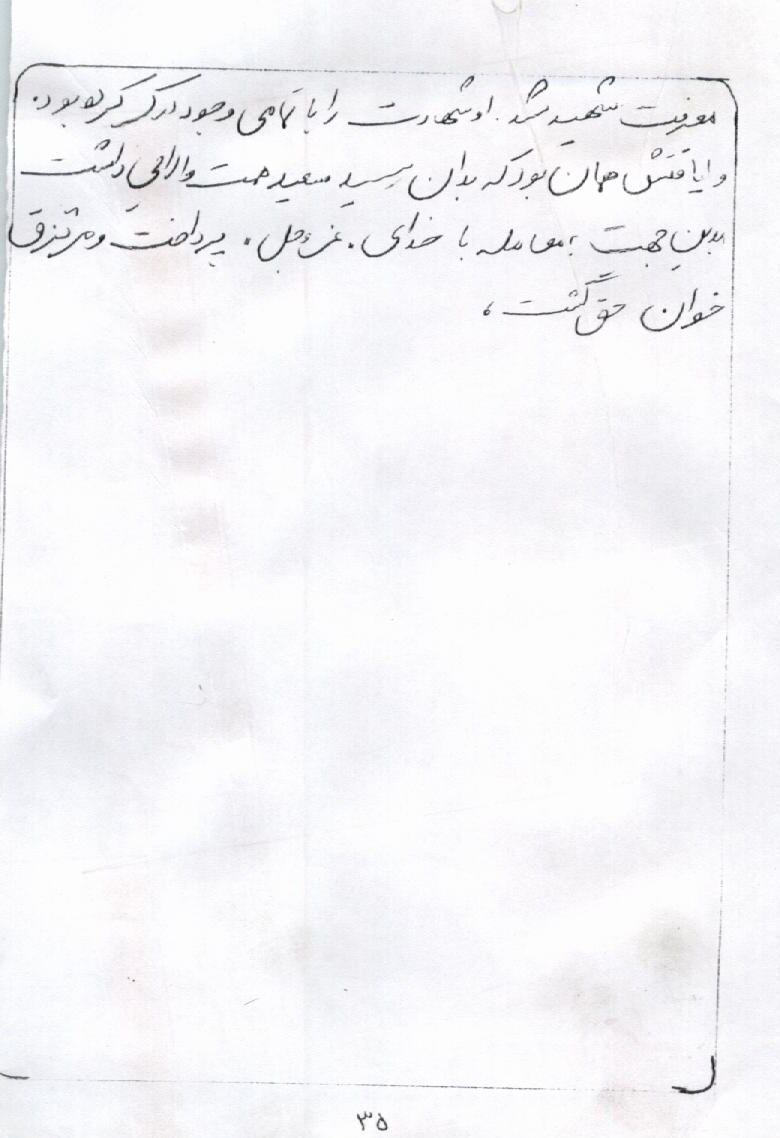 معرفت شهید شد. او شهادت را با تمامی وجود درک کرده بود.
و یافتنش همان بود که بدان رسید سعید همت والایی داشت
بدین جهت بمعامله با خدای. عزوجل. پرداخت و مرتزق
خوان حق گشت،
۳۵